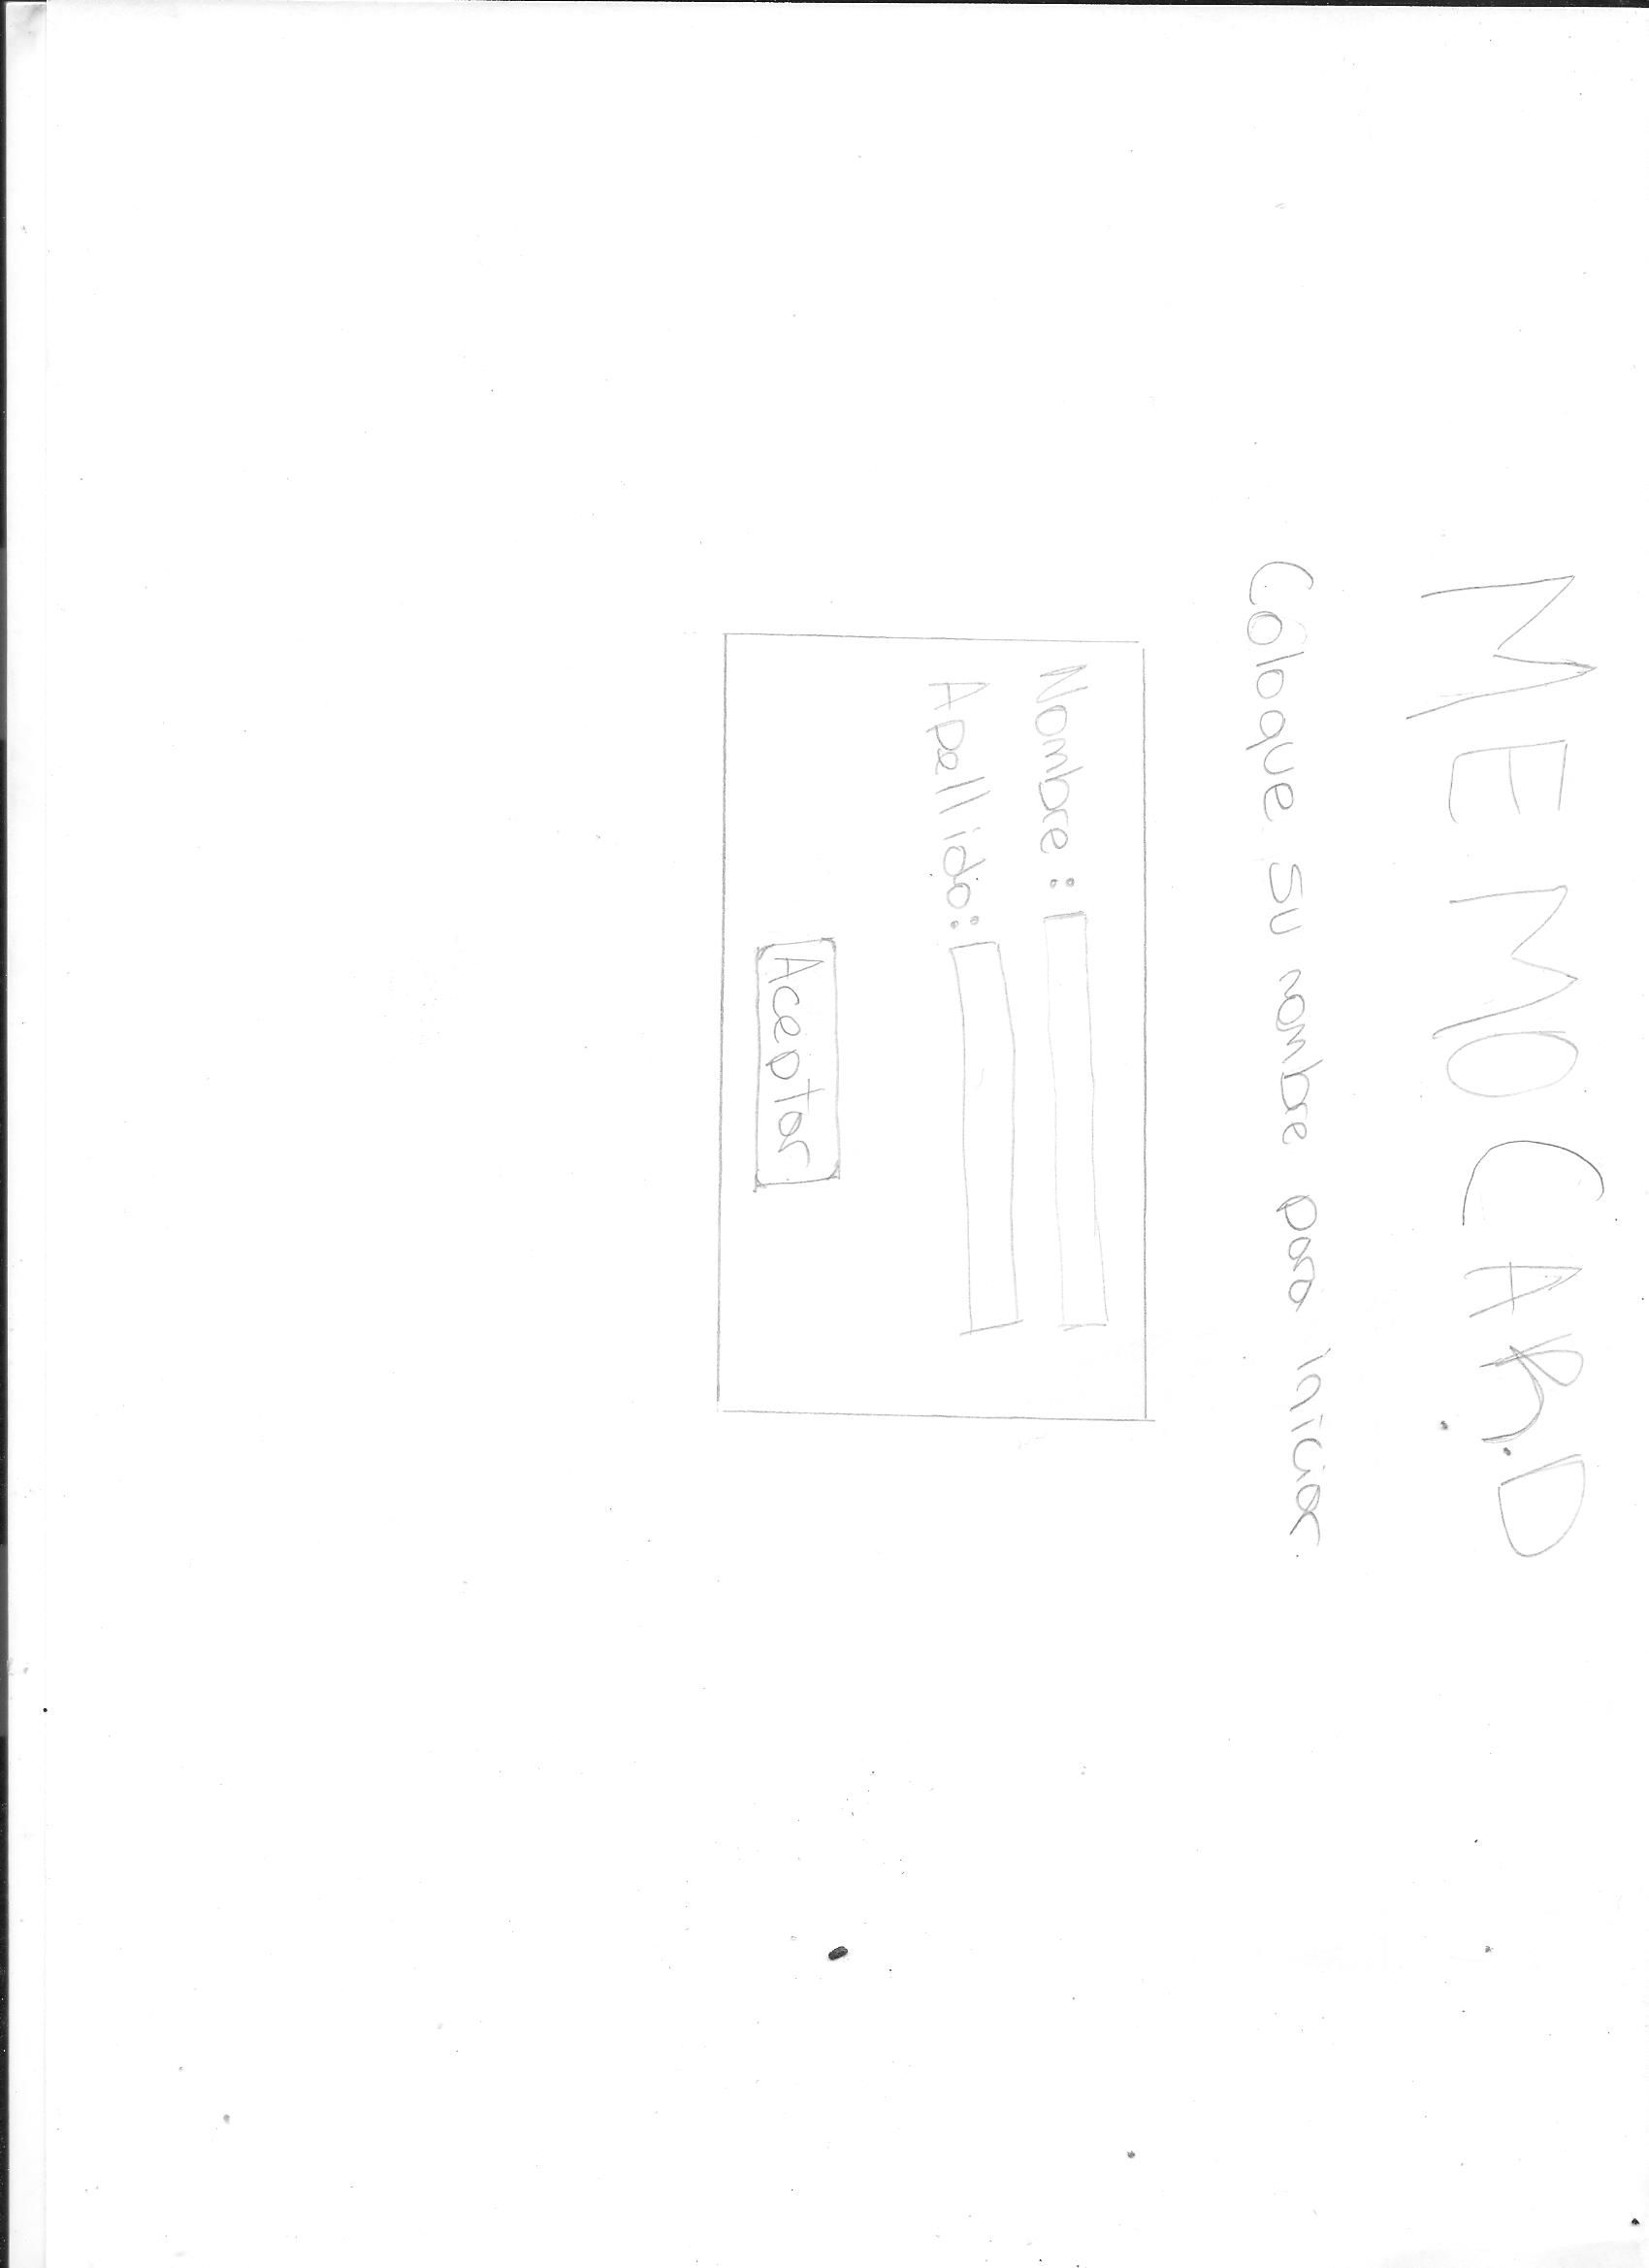 MEMO CARD
Coloque su nombre para iniciar
Nombre:
Apellido:
Aceptar